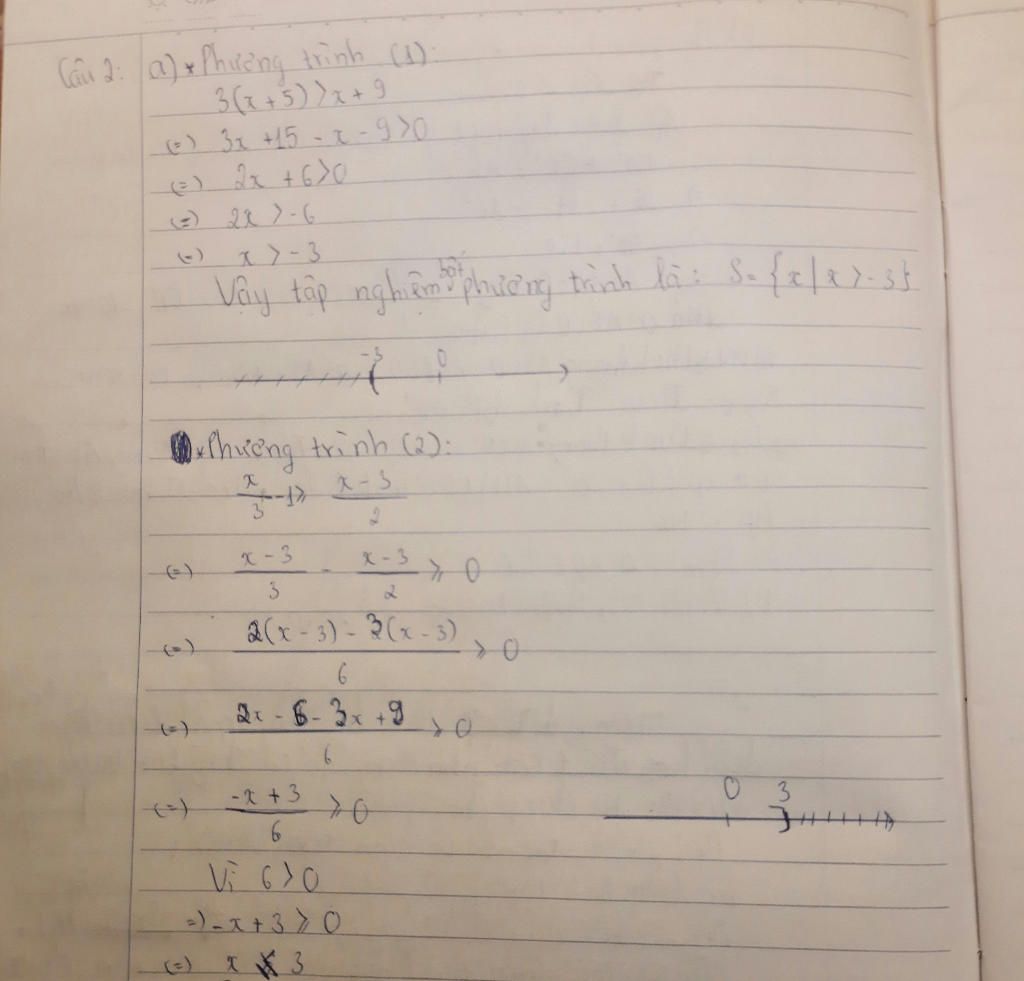 Câu 2: a) * Phương trình (1):
3(x + 5) > x + 9
(=) 3x + 15 - x - 9 > 0
(=) 2x + 6 > 0
(=) 2x > -6
(=) x > -3
Vậy tập nghiệm bất phương trình là: S = {x / x > -3}
-3 0
* Phương trình (2):
x/3 - 1 ≥ (x - 3)/2
(=) (x - 3)/3 - (x - 3)/2 ≥ 0
(=) (2(x - 3) - 3(x - 3))/6 ≥ 0
(=) (2x - 6 - 3x + 9)/6 ≥ 0
(=) (-x + 3)/6 ≥ 0
0 3
Vì 6 > 0
=) -x + 3 ≥ 0
(=) x ≤ 3